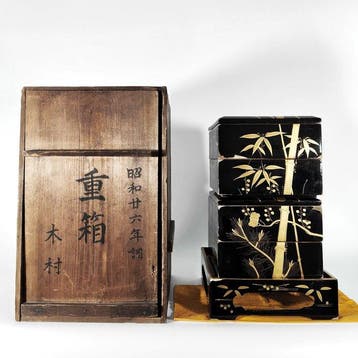 昭和廿六年調
重箱
木村